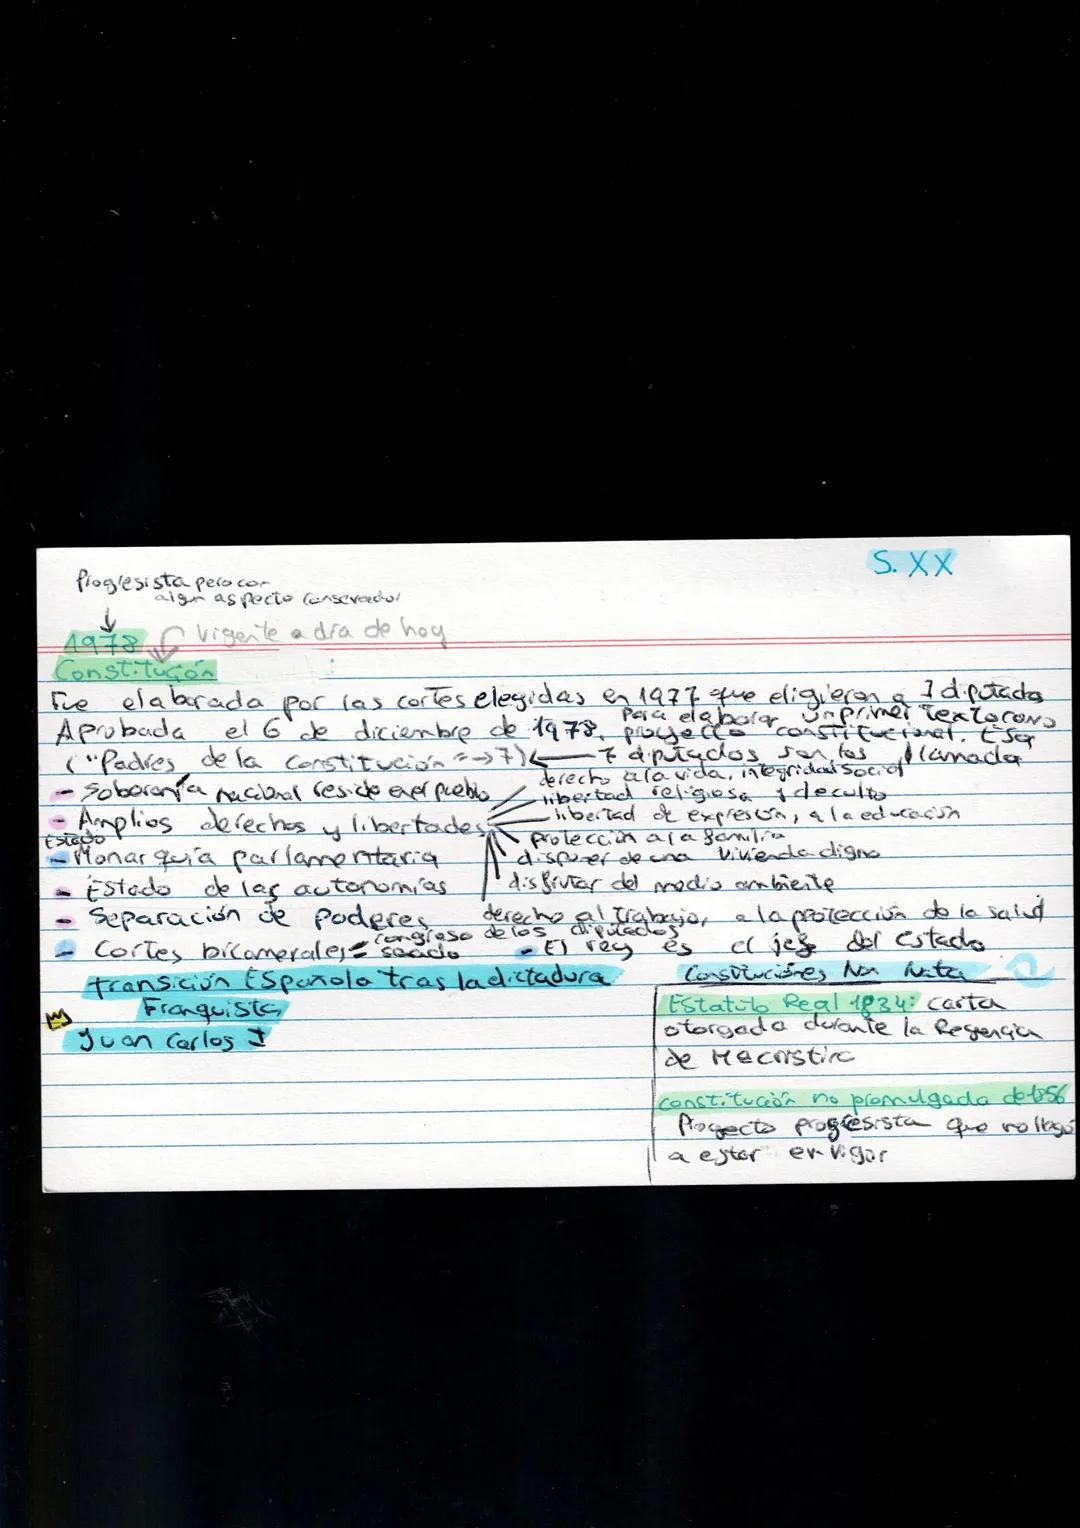 S. XX
Progresista pero con
algun aspecto conservador
1978 Vigente a dia de hoy
Constitución
Fue elaborada por las cortes elegidas en 1977 que eligieron a 7 diputados
para elaborar un primer texto como
Aprobada el 6 de diciembre de 1978. proyecto constitucional.
("Padres de la Constitución" => 7) ← 7 diputados son los llamados
- Soberanía nacional reside en el pueblo
derecho a la vida, integridad social
libertad religiosa y de culto
- Amplios derechos y libertades:
libertad de expresión, a la educación
protección a la familia
Estado
- Monarquía parlamentaria
disponer de una vivienda digna
- Estado de las autonomías
disfrutar del medio ambiente
- Separación de poderes
derecho al trabajo, a la protección de la salud
- Cortes bicamerales = congreso de los diputados
senado
- El rey es el jefe del estado
transición Española tras la dictadura
Franquista
Juan Carlos I
Constituciones Non Nata
Estatuto Real 1834: carta
otorgada durante la Regencia
de Mªcristina
Constitución no promulgada de 1856
Proyecto progresista que no llegó
a estar en vigor